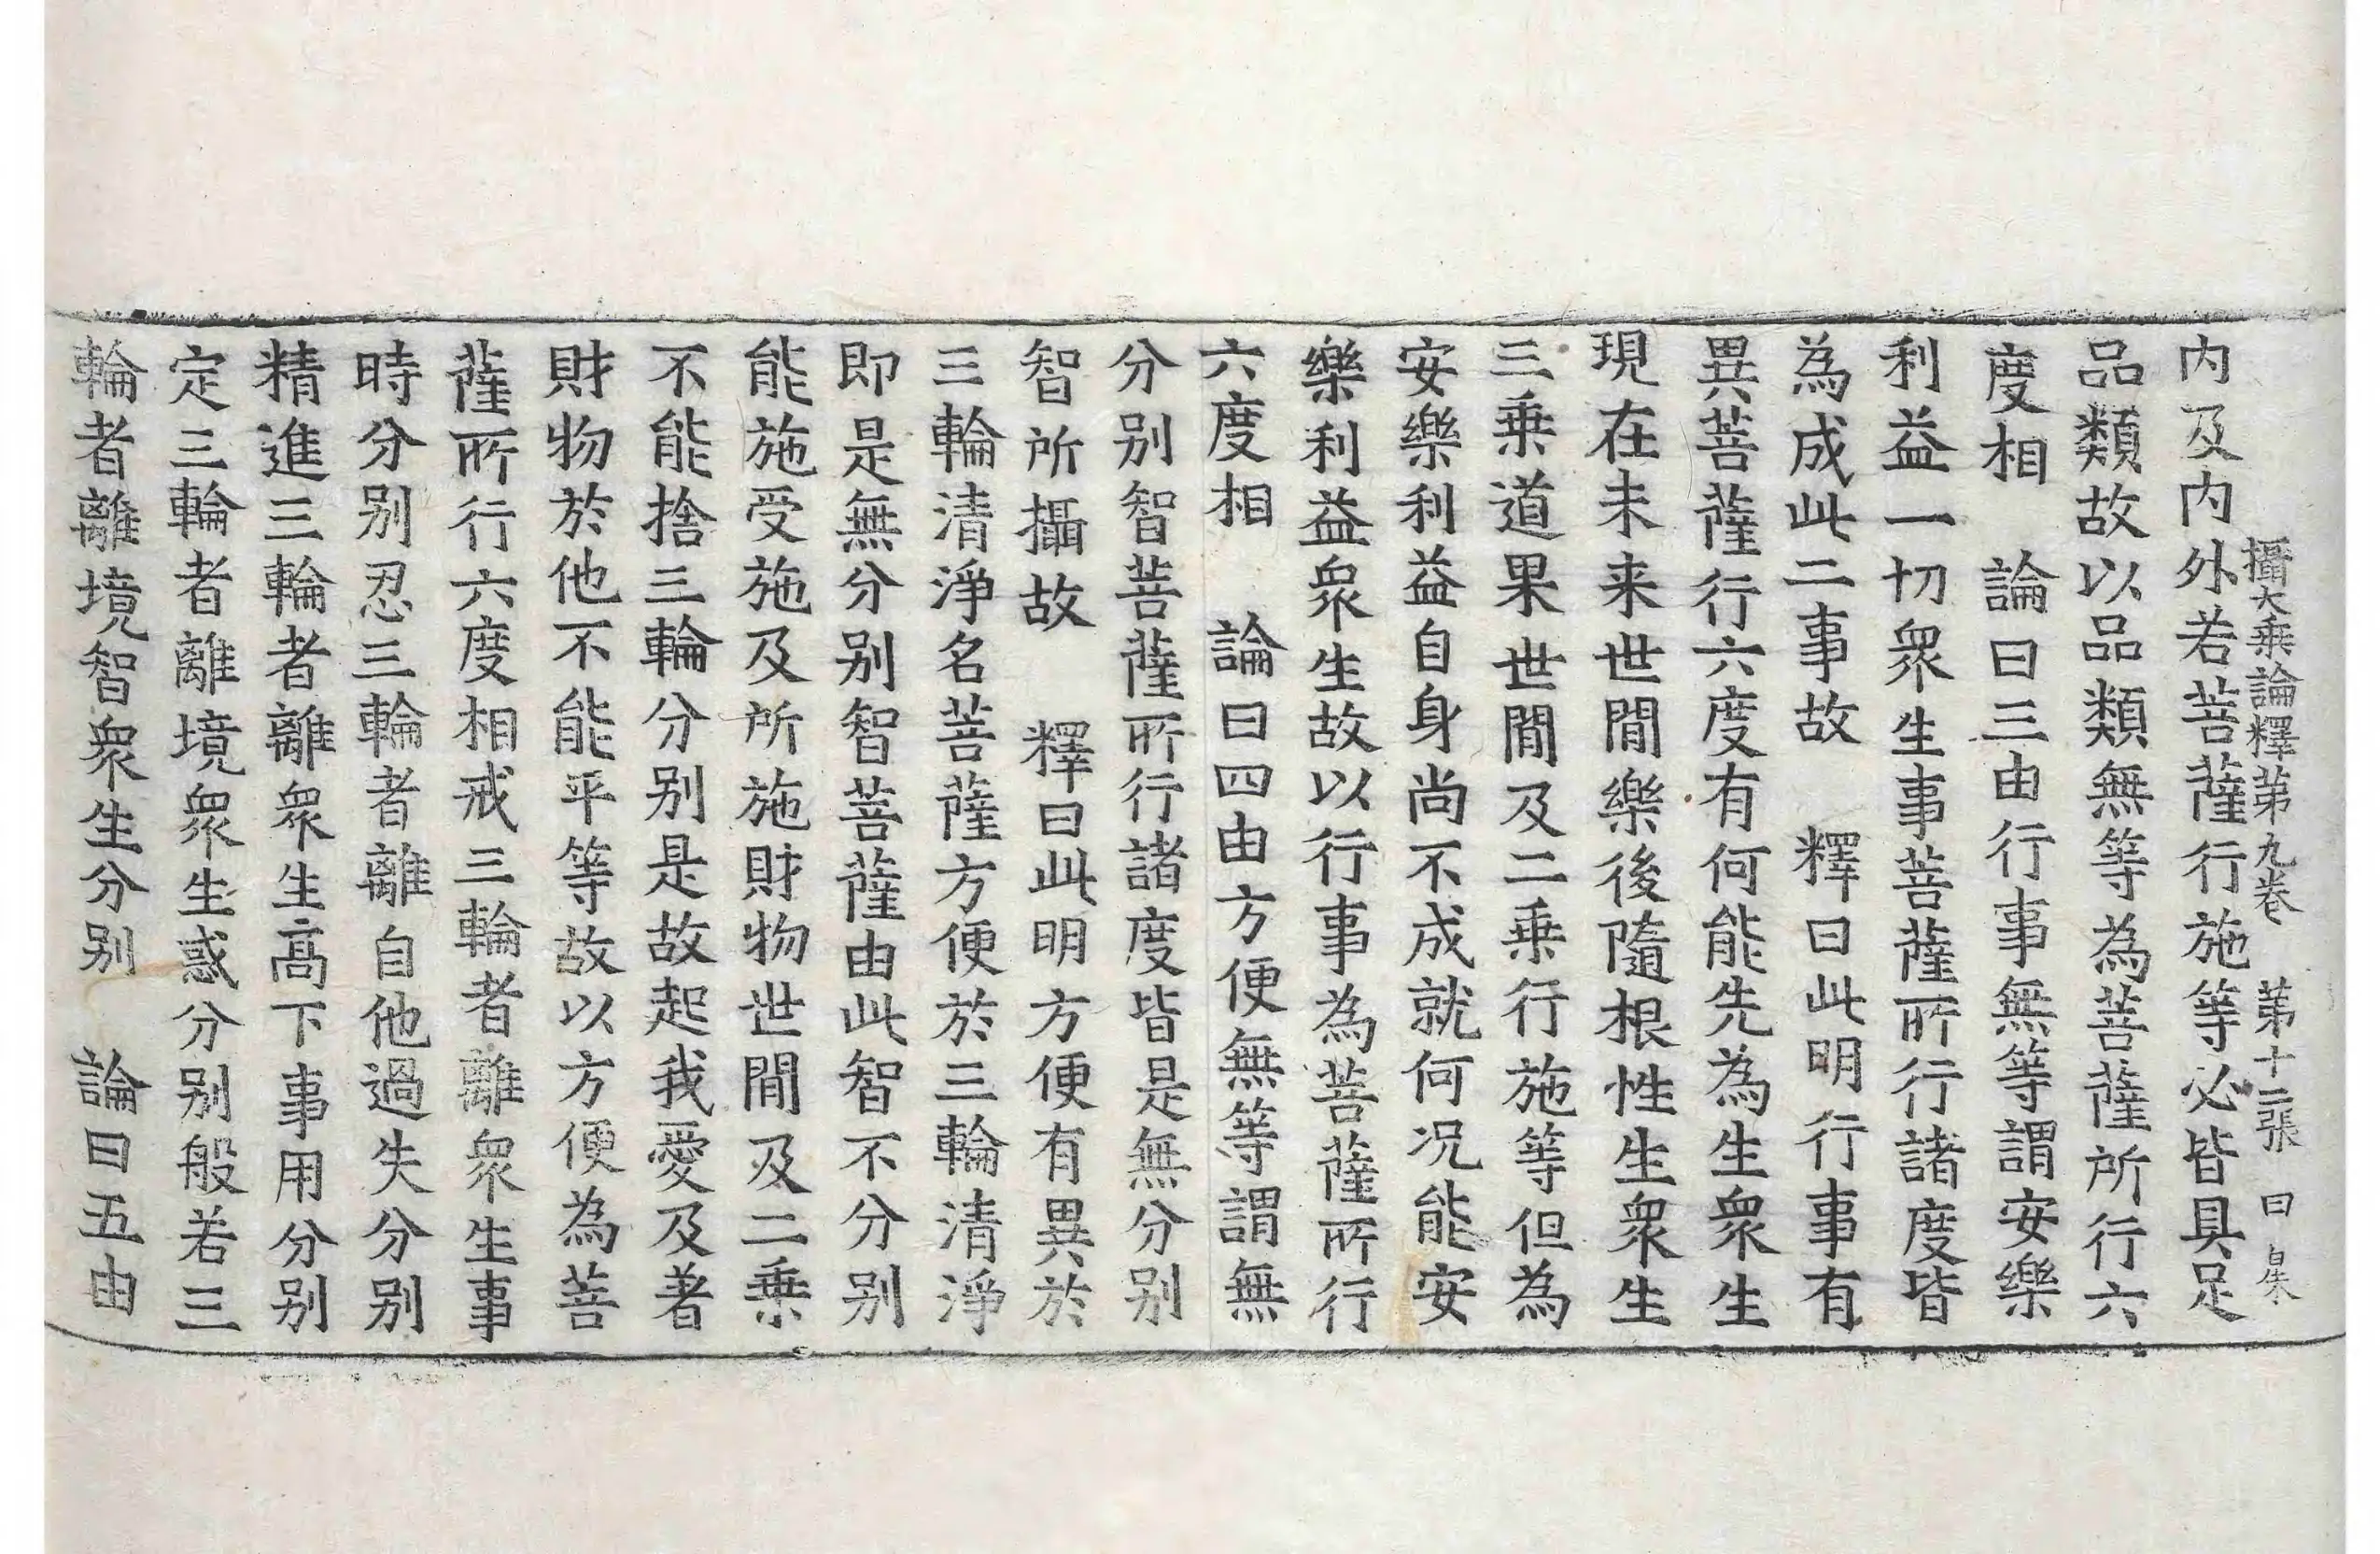 攝大乘論釋第九卷　第十二張　日
内及内外若菩薩行施等必皆具足
品類故以品類無等為菩薩所行六
度相　論曰三由行事無等謂安樂
利益一切衆生事菩薩所行諸度皆
為成此二事故　釋曰此明行事有
異菩薩行六度有何能先為生衆生
現在未来世間樂後隨根性生衆生
三乘道果世間及二乘行施等但為
安樂利益自身尚不成就何況能安
樂利益衆生故以行事為菩薩所行
六度相　論曰四由方便無等謂無
分别智菩薩所行諸度皆是無分别
智所攝故　釋曰此明方便有異於
三輪清淨名菩薩方便於三輪清淨
即是無分别智菩薩由此智不分别
能施受施及所施財物世間及二乘
不能捨三輪分别是故起我愛及著
財物於他不能平等故以方便為菩
薩所行六度相戒三輪者離衆生事
時分别忍三輪者離自他過失分别
精進三輪者離衆生高下事用分别
定三輪者離境衆生惑分别般若三
輪者離境智衆生分别　論曰五由